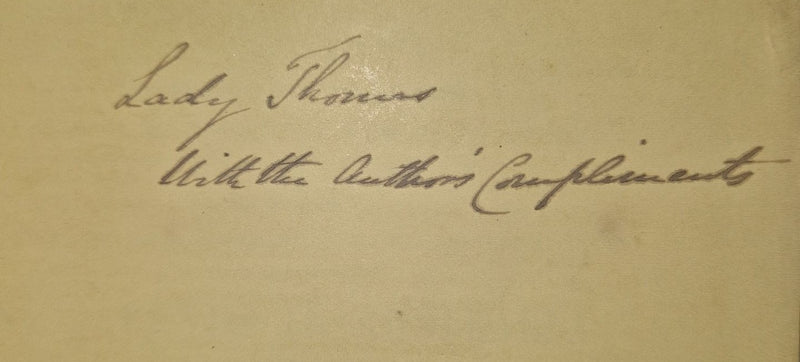 Lady Thomas
With the Author's Compliments